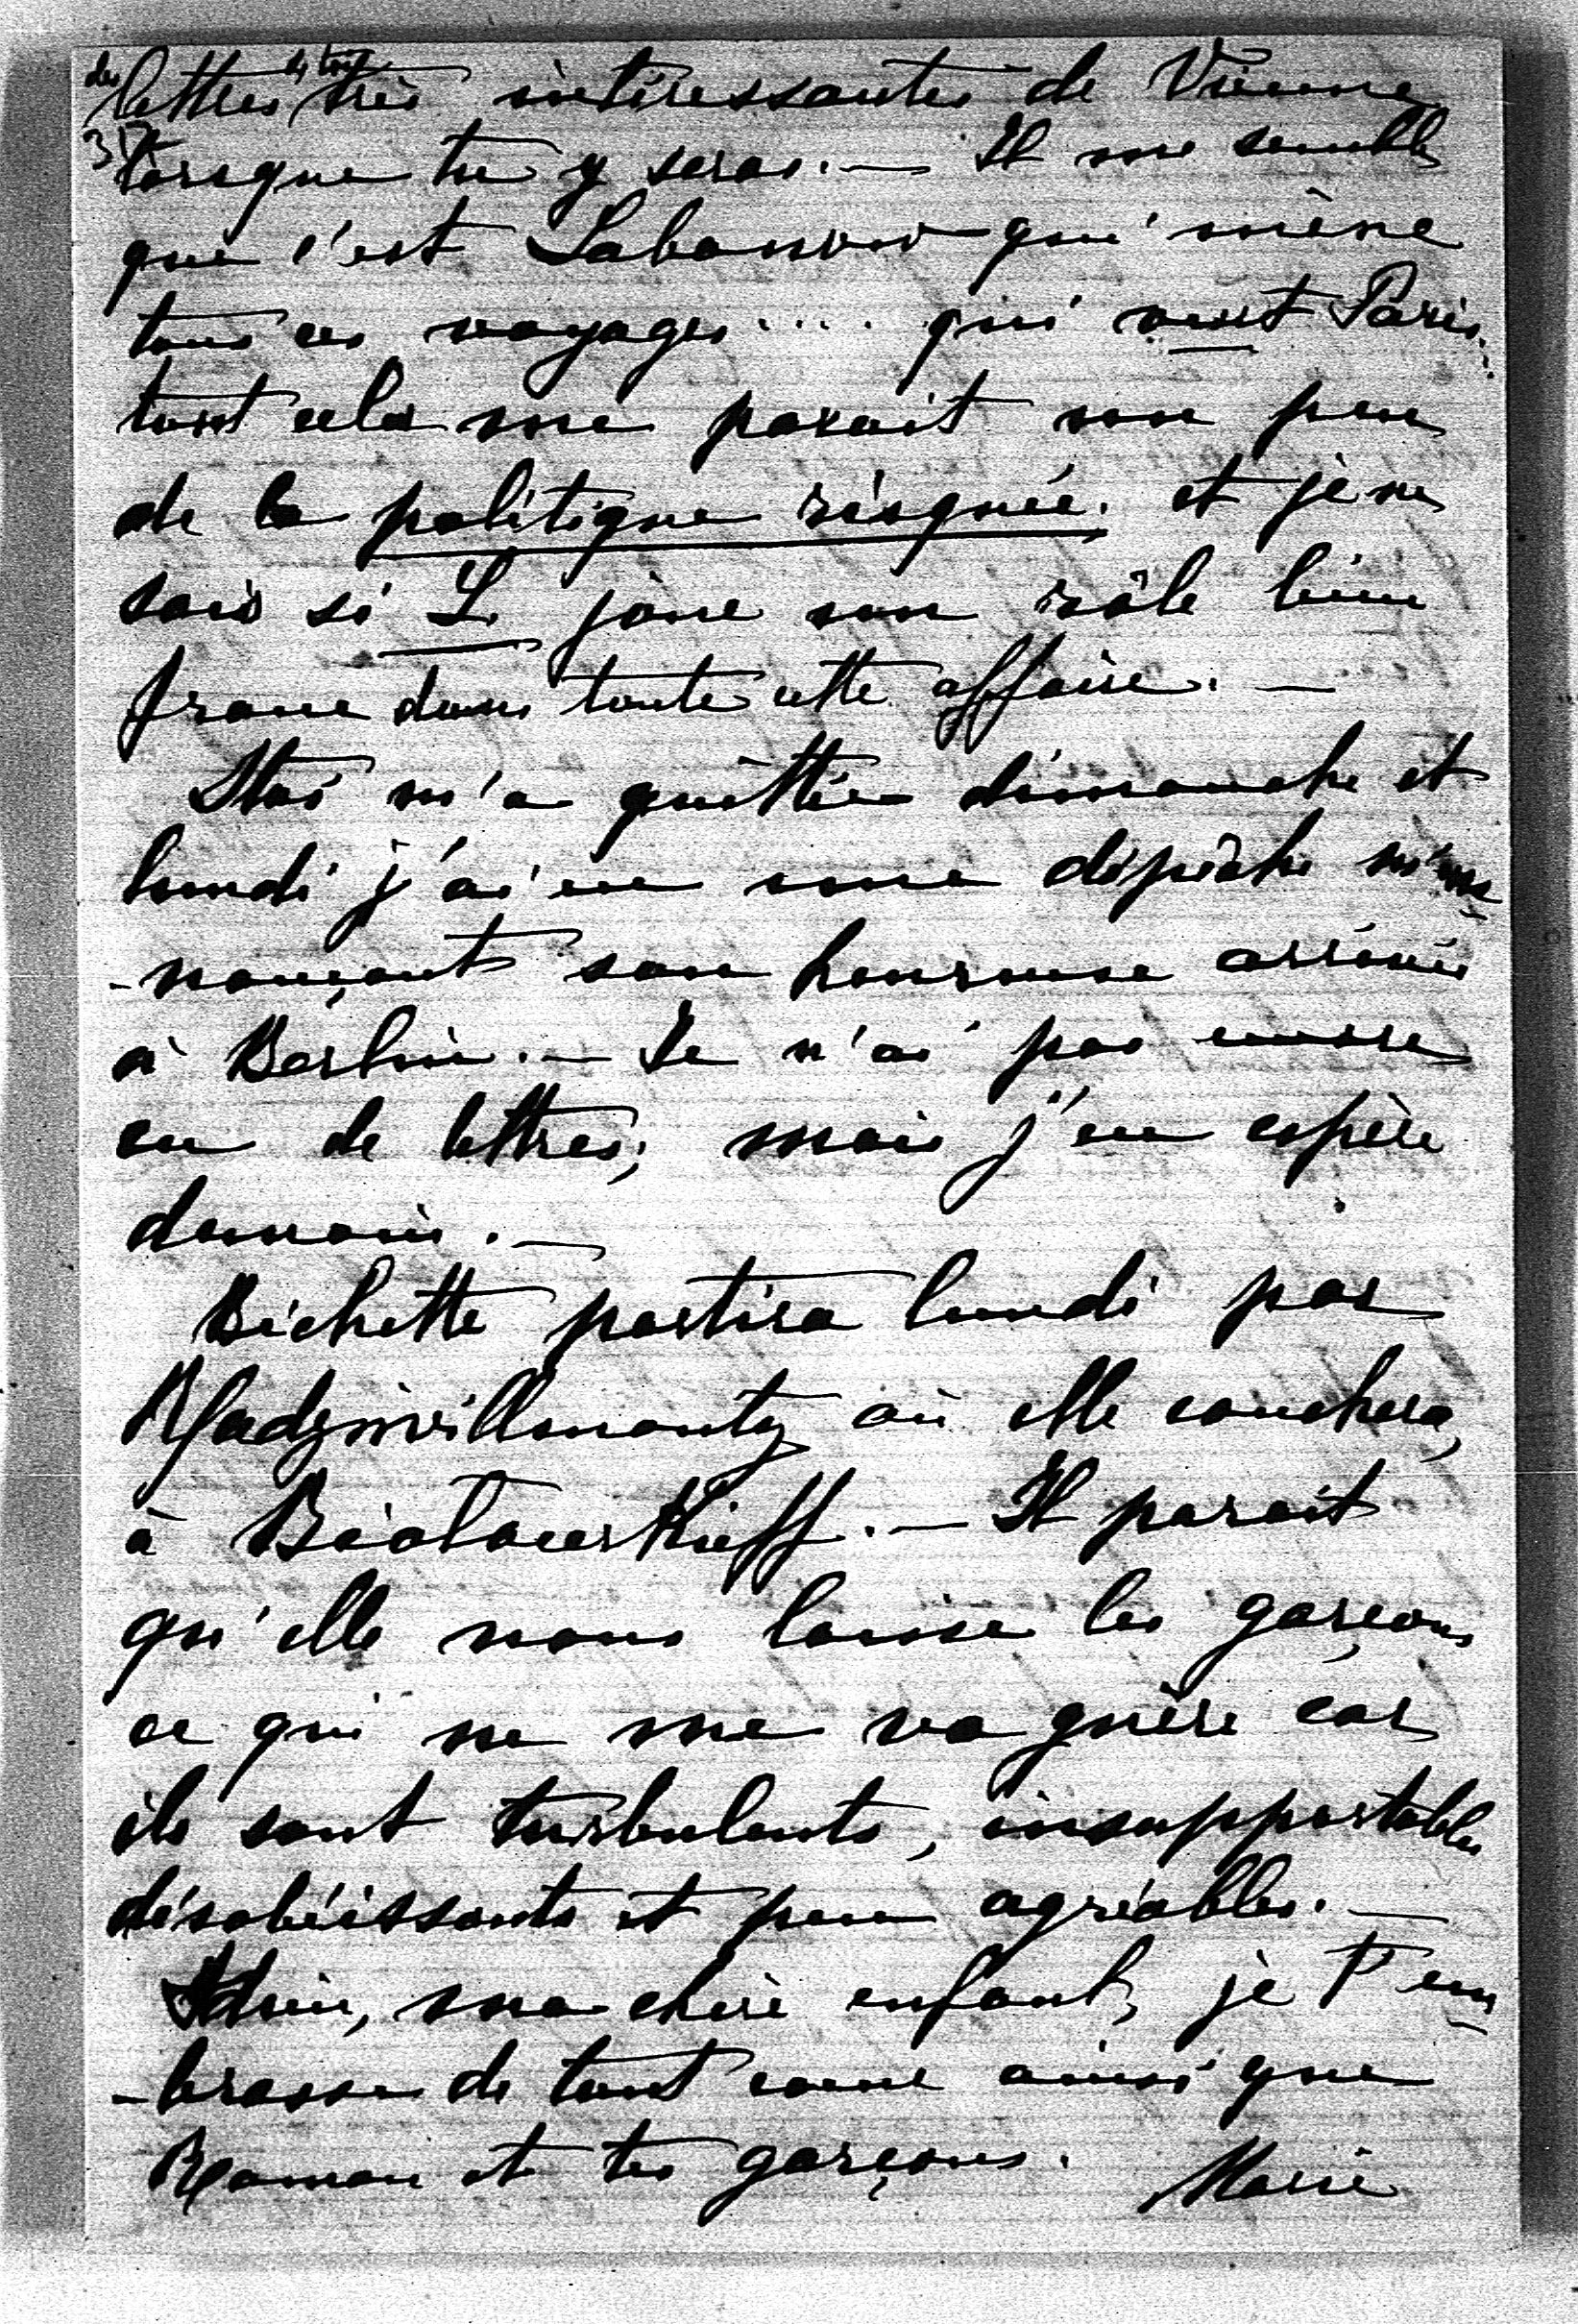 des lettres très intéressantes de Vienne
317
lorsque tu y seras. — Il me semble
que c'est Labanow qui mène
tous ces voyages.... qui veut Paris..
tout cela me parait un peu
de la politique risquée. et je ne
sais si L. joue un rôle bien
franc dans toute cette affaire. —
Stas m'a quittée dimanche et
lundi j'ai eu une dépêche m'an-
-nonçant son heureuse arrivée
à Berlin. — Je n'ai pas encore
eu de lettres; mais j'en espère
demain. —
Bichette partira lundi par
Radziwillmonty où elle couchera,
à Biołocerkieff. — Il parait
qu'elle nous laisse les garçons
ce qui ne me va guère car
ils sont turbulents, insupportables
désobéissants et peu agréables. —
Adieu, ma chère enfant, je t'em-
-brasse de tout coeur ainsi que
Roman et tes garçons. Marie